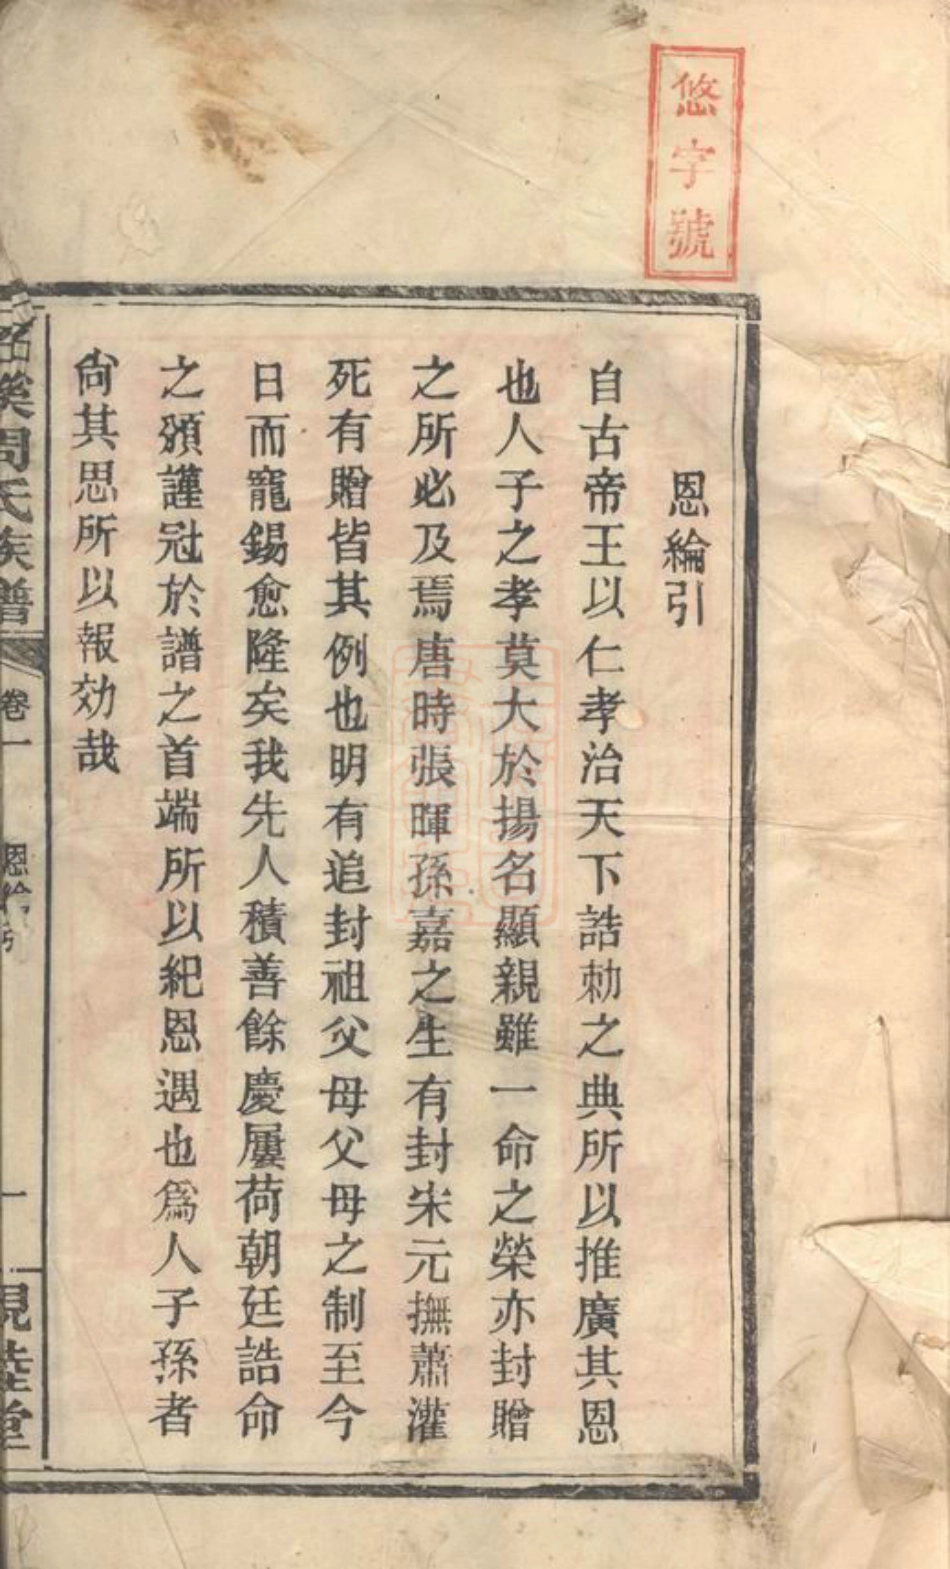 悠字號
恩綸引
自古帝王以仁孝治天下誥勅之典所以推廣其恩
也人子之孝莫大於揚名顯親雖一命之榮亦封贈
之所必及焉唐時張暉孫嘉之生有封宋元撫蕭灌
死有贈皆其例也明有追封祖父母父母之制至今
日而寵錫愈隆矣我先人積善餘慶屢荷朝廷誥命
之頒謹冠於譜之首端所以紀恩遇也爲人子孫者
尙其思所以報効哉
溪周氏族譜
卷一
恩綸引
一
堂